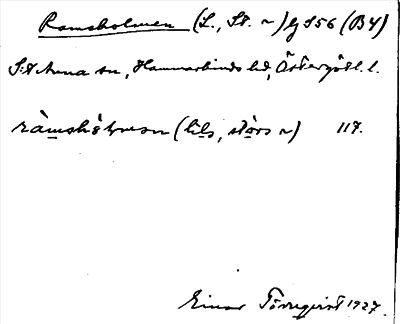 Ramsholmen (L., St. ~) lg 856 (B4)
S:t Anna sn, Hammarkinds hd, Östergötl. l.
ràmshɷ̀lmən (lìls, stòrs ~) 117.
Einar Törnqvist 1927.